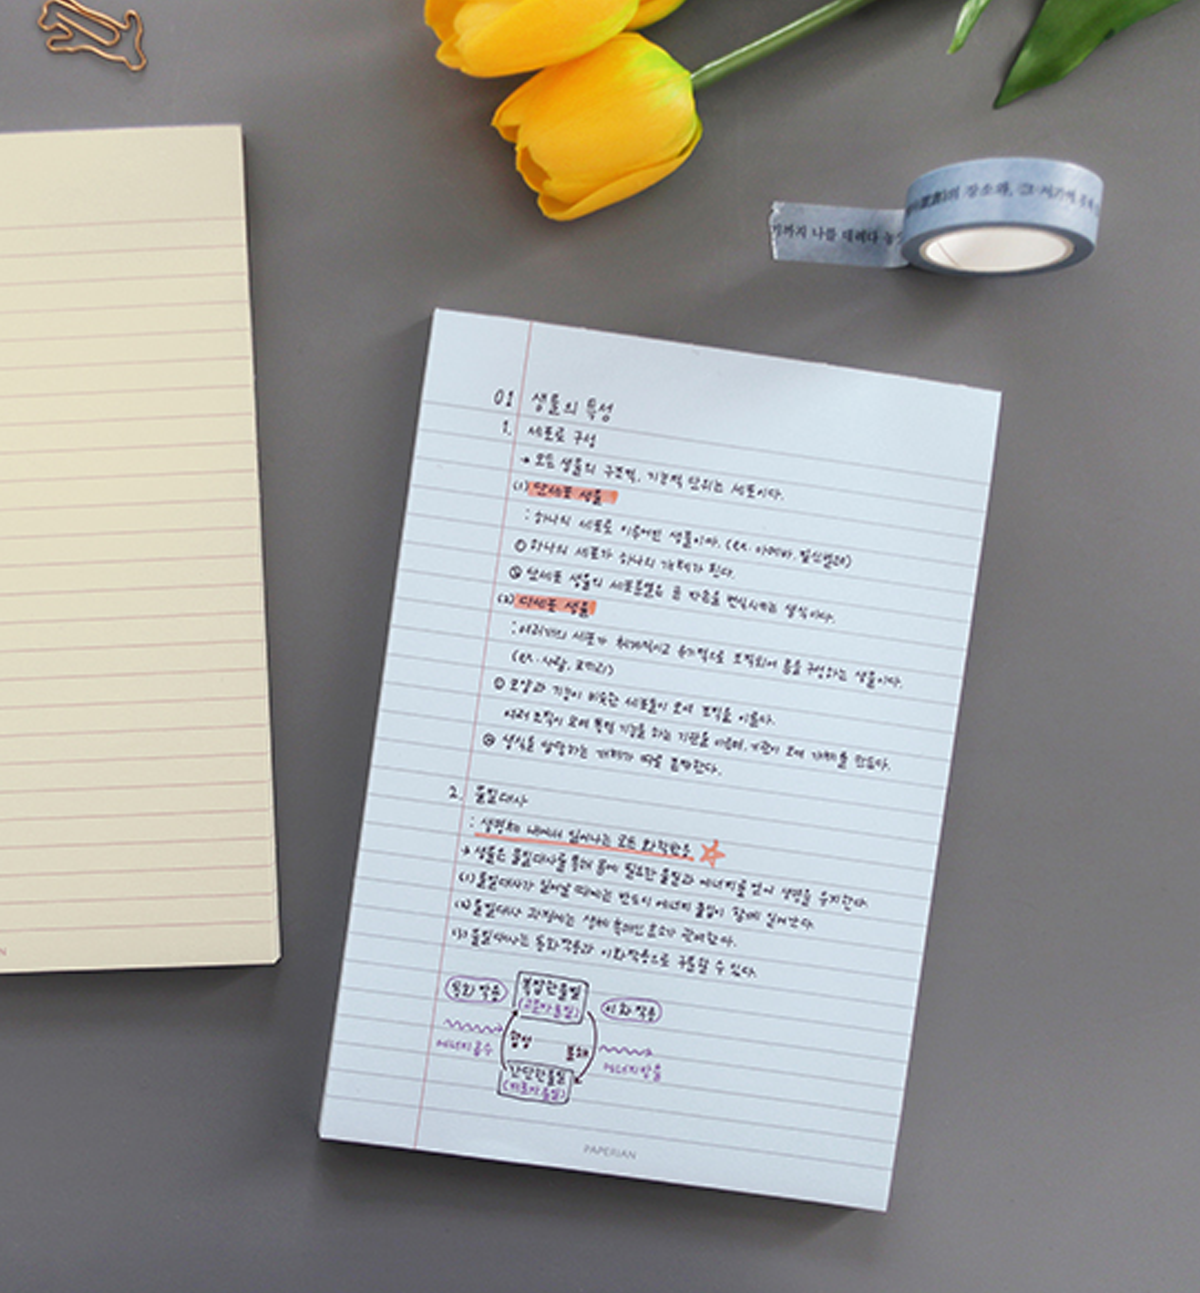 의 장소와, 그 저기에
기까지 나를 데려다 놓
01 생물의 특성
1. 세포로 구성
→ 모든 생물의 구조적, 기능적 단위는 세포이다.
(1) 단세포 생물
: 하나의 세포로 이루어진 생물이다. (ex. 아메바, 짚신벌레)
① 하나의 세포가 하나의 개체가 된다.
② 단세포 생물의 세포분열은 곧 자손을 번식시키는 생식이다.
(2) 다세포 생물
: 여러개의 세포가 체계적이고 유기적으로 조직되어 몸을 구성하는 생물이다.
(ex. 사람, 코끼리)
① 모양과 기능이 비슷한 세포들이 모여 조직을 이룬다.
여러 조직이 모여 특정 기능을 하는 기관을 이루며, 기관이 모여 개체를 만든다.
② 생식을 담당하는 개체가 따로 존재한다.
2. 물질대사
: 생명체 내에서 일어나는 모든 화학반응
→ 생물은 물질대사를 통해 몸에 필요한 물질과 에너지를 얻어 생명을 유지한다.
(1) 물질대사가 일어날 때에는 반드시 에너지 출입이 함께 일어난다.
(2) 물질대사 과정에는 생체 촉매인 효소가 관여한다.
(3) 물질대사는 동화작용과 이화작용으로 구분할 수 있다.
동화 작용
복잡한물질
(고분자물질)
이화 작용
에너지흡수
합성
분해
에너지방출
간단한물질
(저분자물질)
PAPERIAN
N